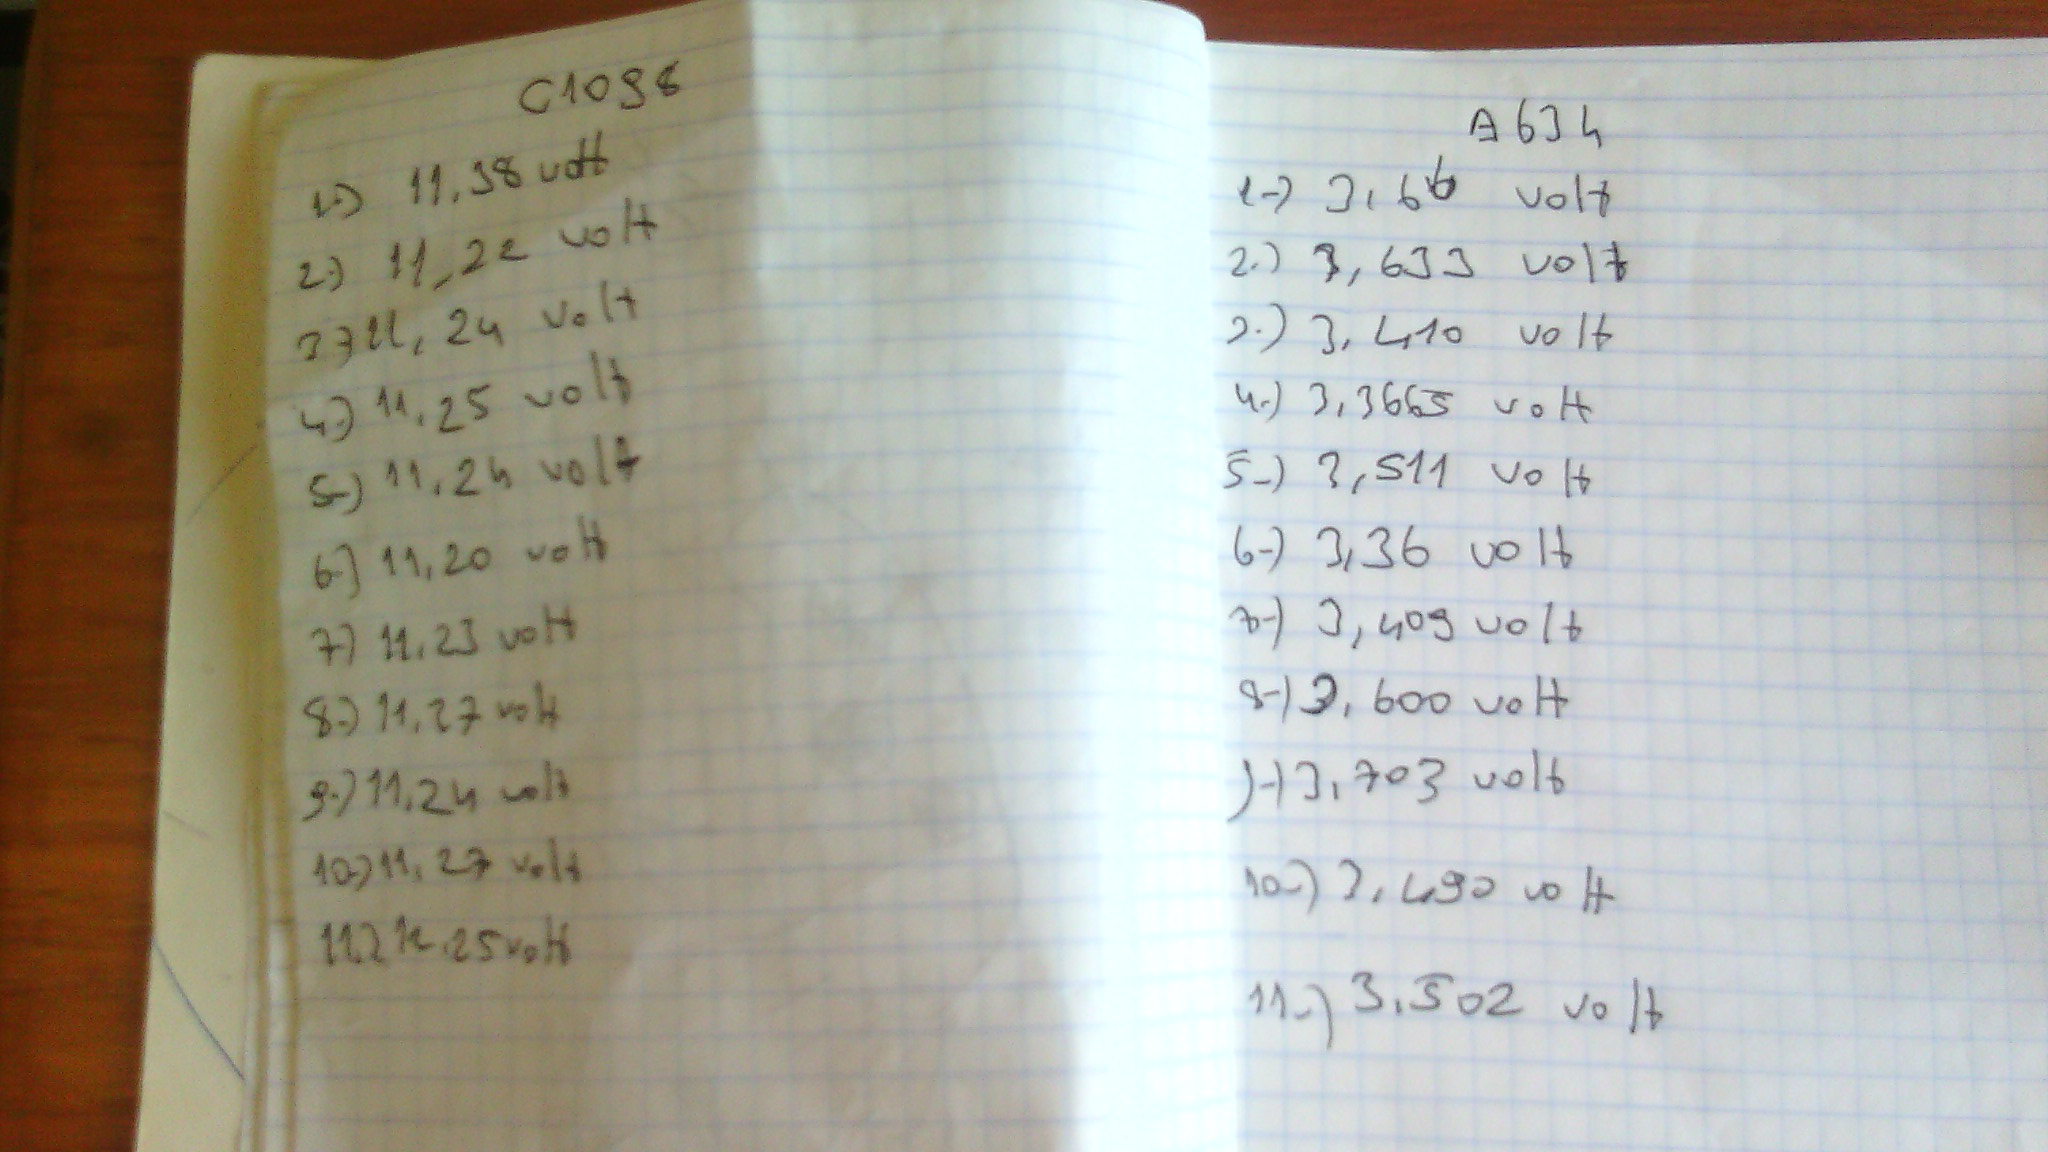 C1098
1-) 11,38 volt
2-) 11,22 volt
3-) 11,24 volt
4-) 11,25 volt
5-) 11,24 volt
6-) 11,20 volt
7-) 11,23 volt
8-) 11,27 volt
9-) 11,24 volt
10-) 11,27 volt
11-) 11,25 volt
A634
1-) 3,66 volt
2-) 3,633 volt
3-) 3,410 volt
4-) 3,3665 volt
5-) 3,511 volt
6-) 3,36 volt
7-) 3,409 volt
8-) 3,600 volt
9-) 3,703 volt
10-) 3,490 volt
11-) 3,502 volt